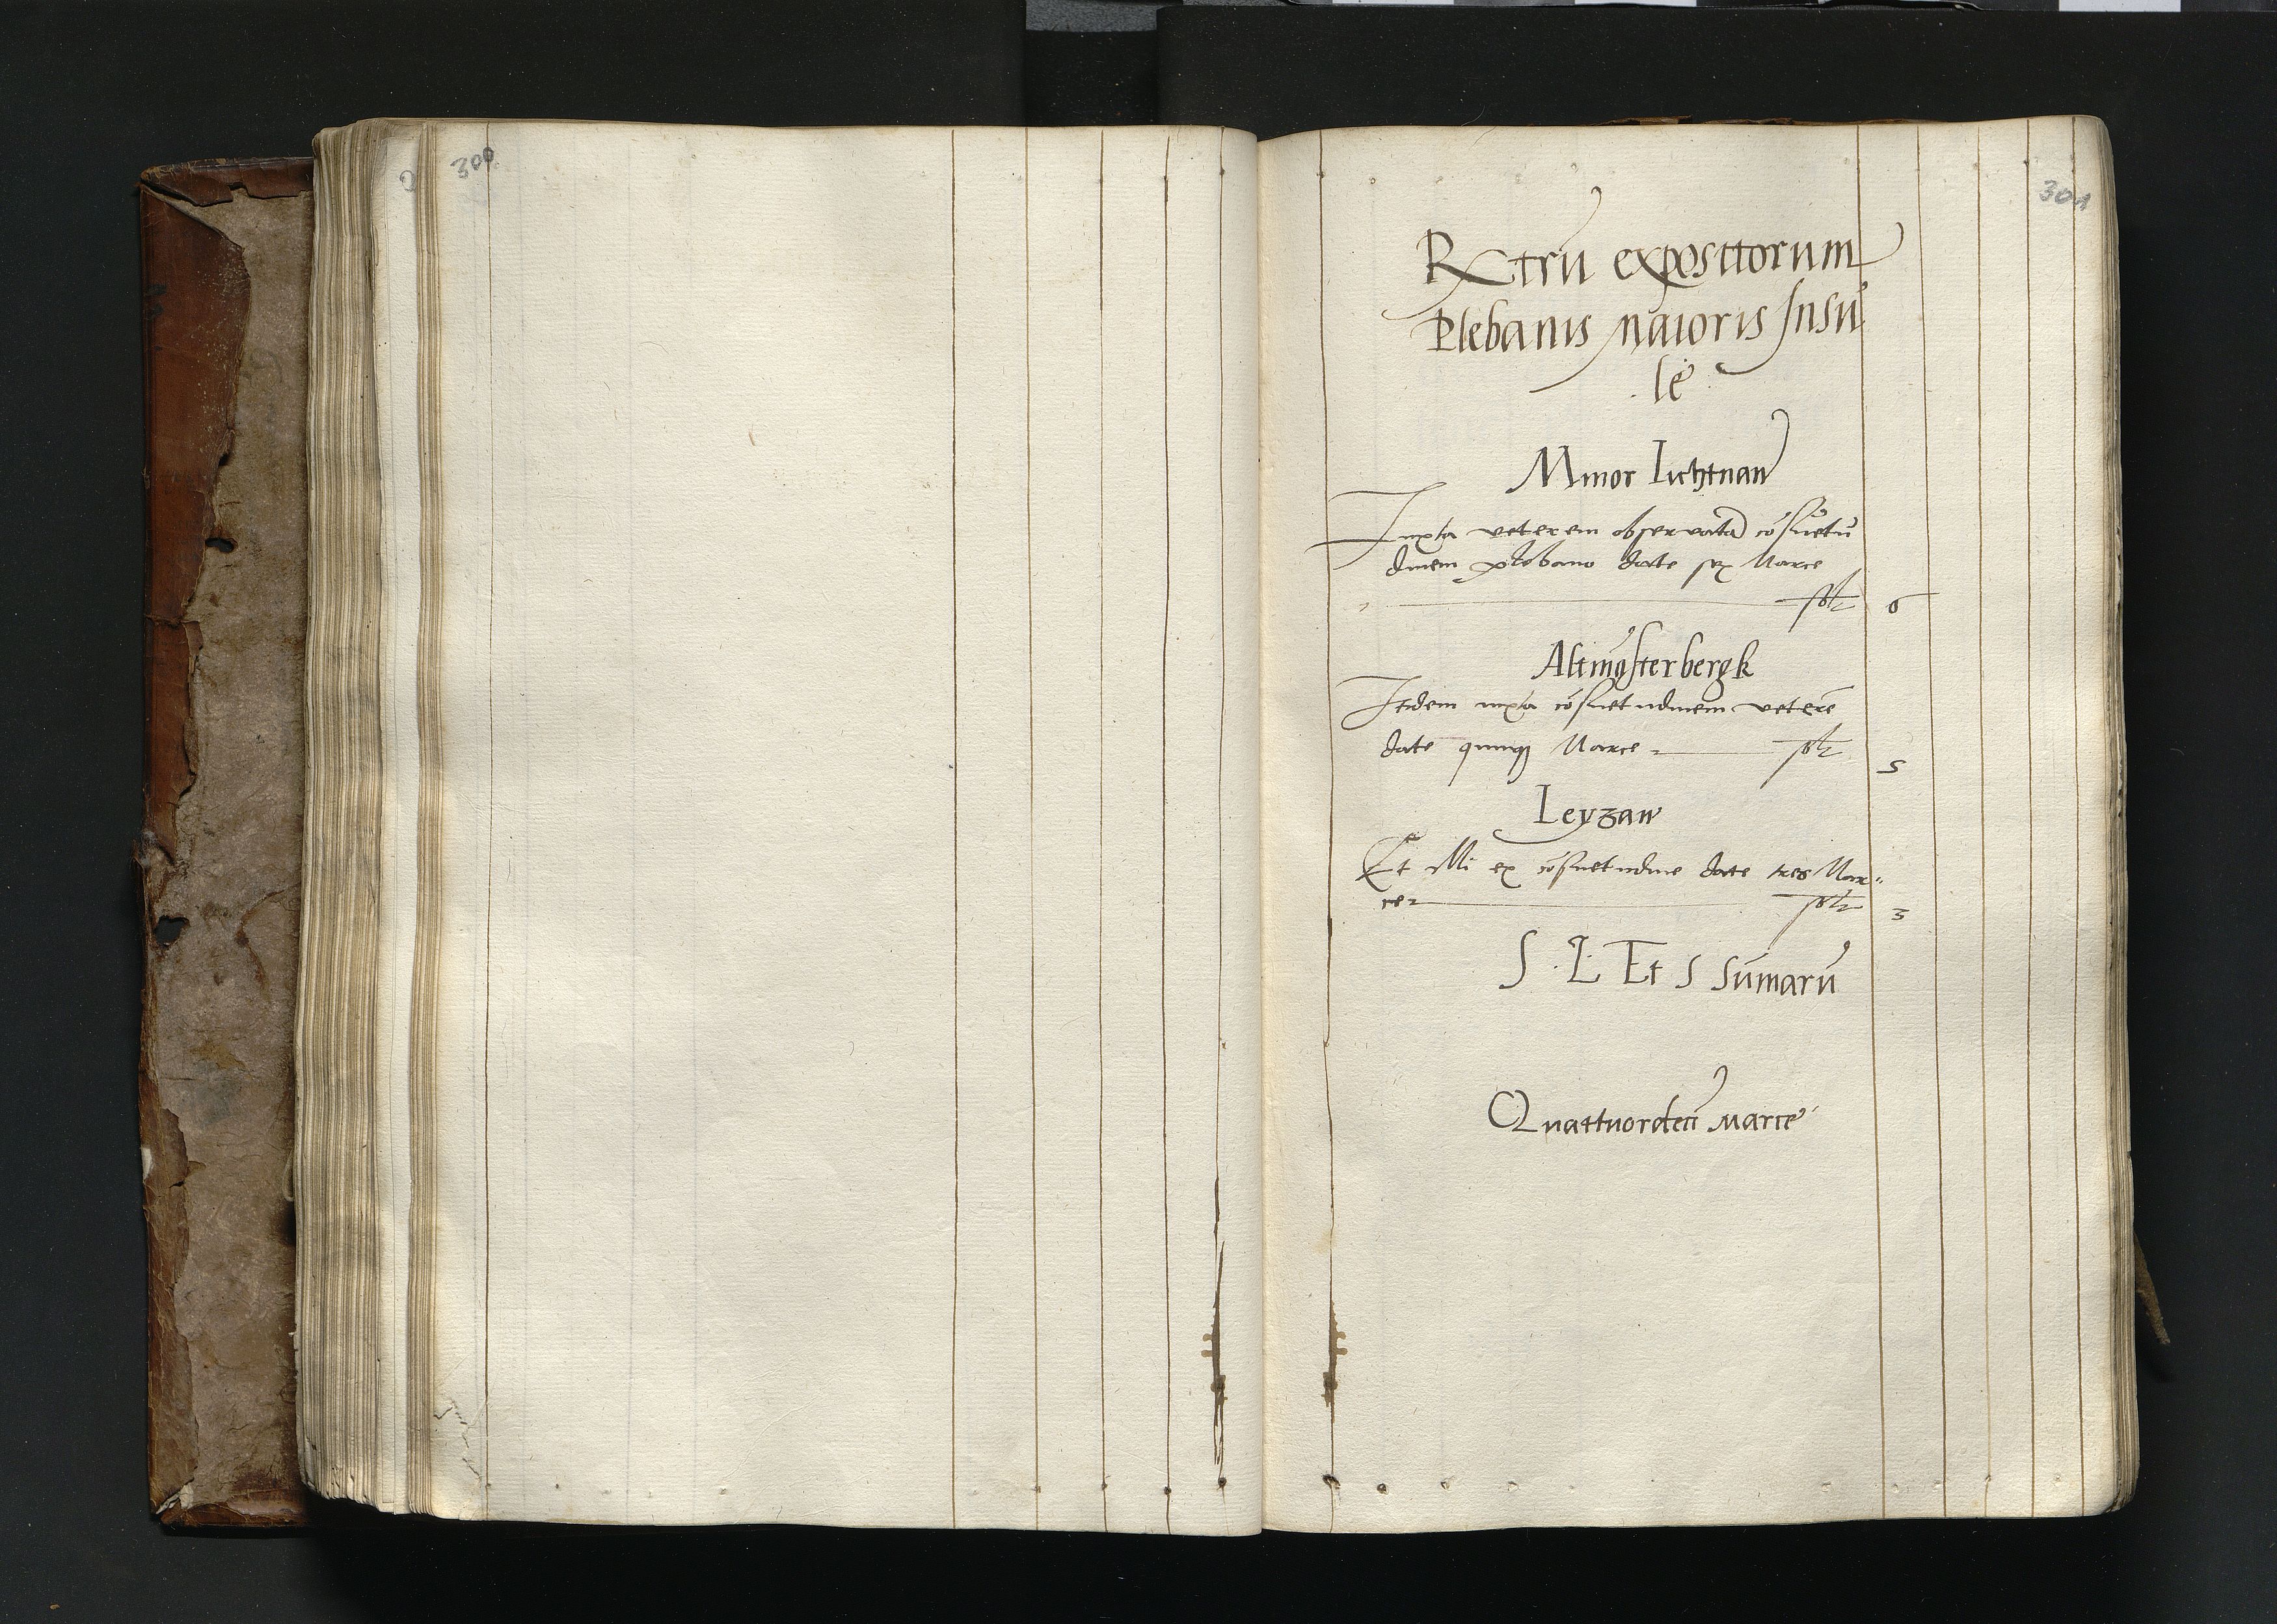 300
301
Rx͞trũ expositorum
Plebanis maioris Insu
le
Minor lichtnaw
Iuxta veterem observatã cõsuetũ
dinem plebano date sex Marce
6
Altmũsterbergk
Itidem iuxta cõsuetudinem veterẽ
date quinqꝫ Marce
5
Leyzaw
Et illi ex cõsuetudine date tres Mar=
ce
3
S . L Et S Sũmarũ
Quattuordecĩ Marce